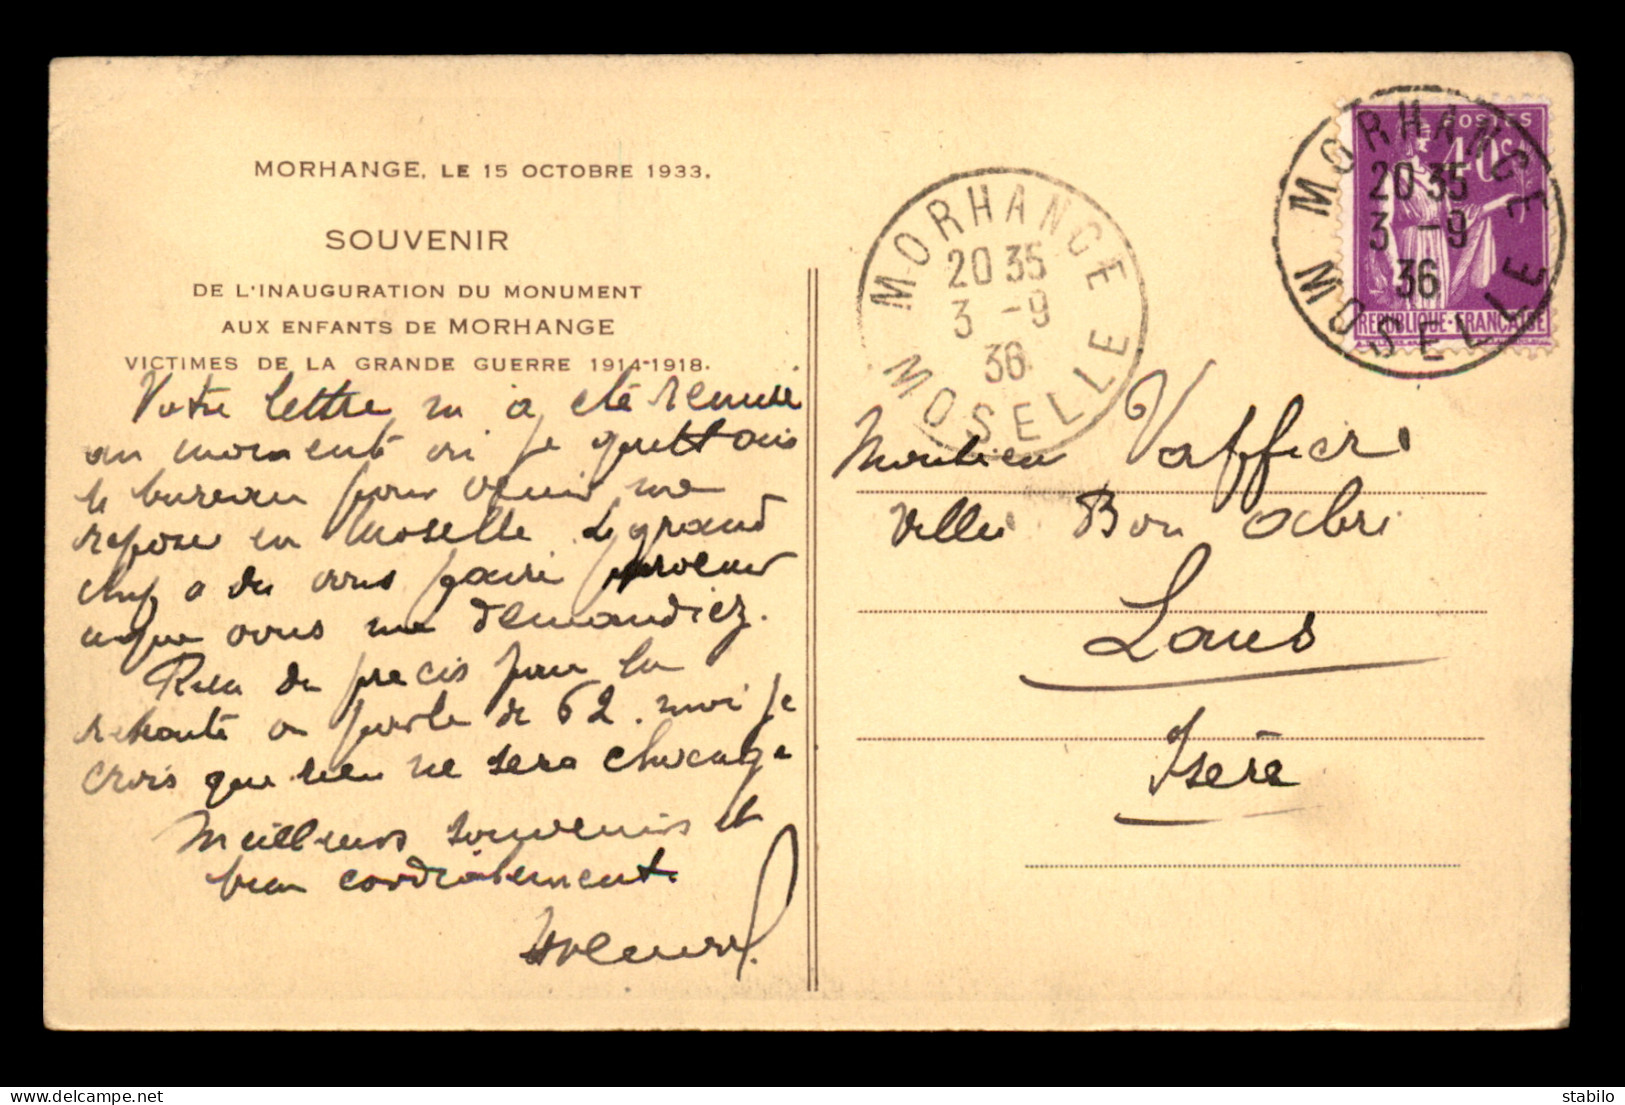 MORHANGE, LE 15 OCTOBRE 1933.
SOUVENIR
DE L'INAUGURATION DU MONUMENT
AUX ENFANTS DE MORHANGE
VICTIMES DE LA GRANDE GUERRE 1914-1918.
Votre lettre m a été remise
au moment ou je quittais
le bureau pour venir me
reposer en Moselle. Le grand
chef a du vous faire parvenir
ce que vous me demandiez.
Rien de precis pour la
retraite on parle de 62. moi je
crois que rien ne sera change
Meilleurs souvenirs et
bien cordialement
MORHANGE
20 35
3 -9
36
MOSELLE
POSTES
40c
REPUBLIQUE-FRANÇAISE
MORHANGE
20 35
3 -9
36
MOSELLE
Monsieur
Villa Bon abri
Lans
Isère
delcampe.net
stabilo